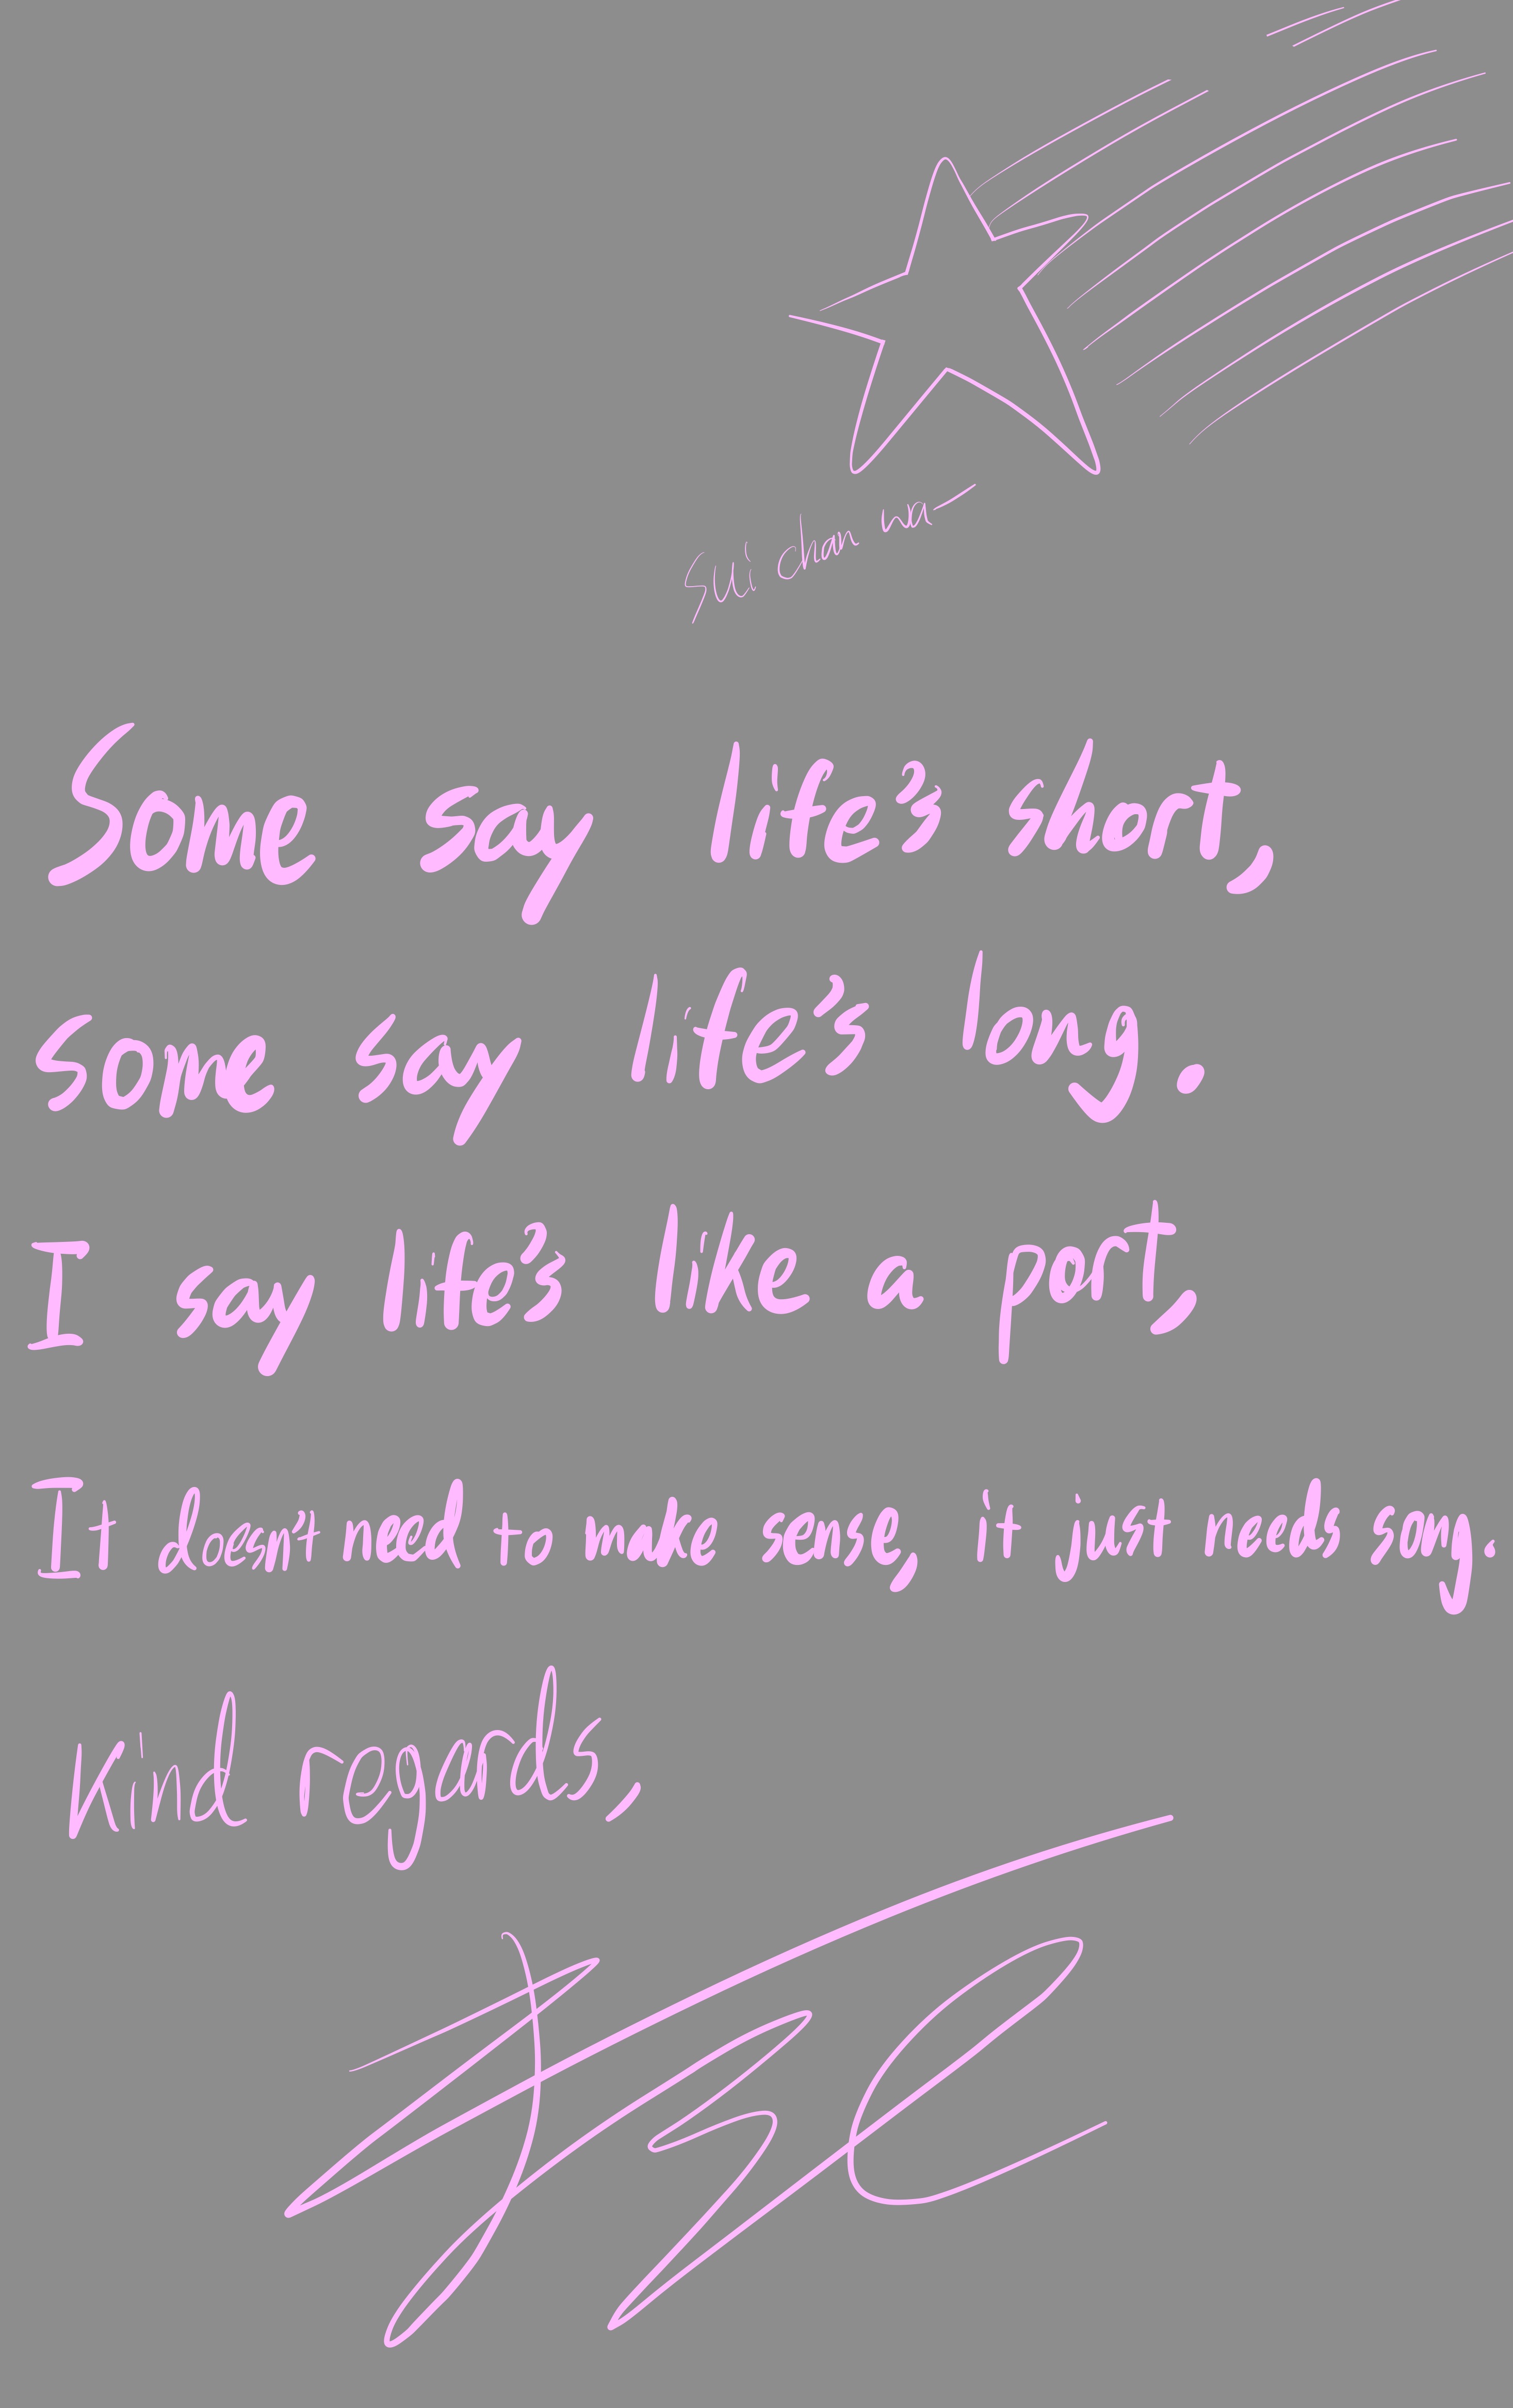 Sui chan wa—
Some say life's short,
some say life's long.
I say life's like a port,
It doesn't need to make sense, it just needs song.
Kind regards,